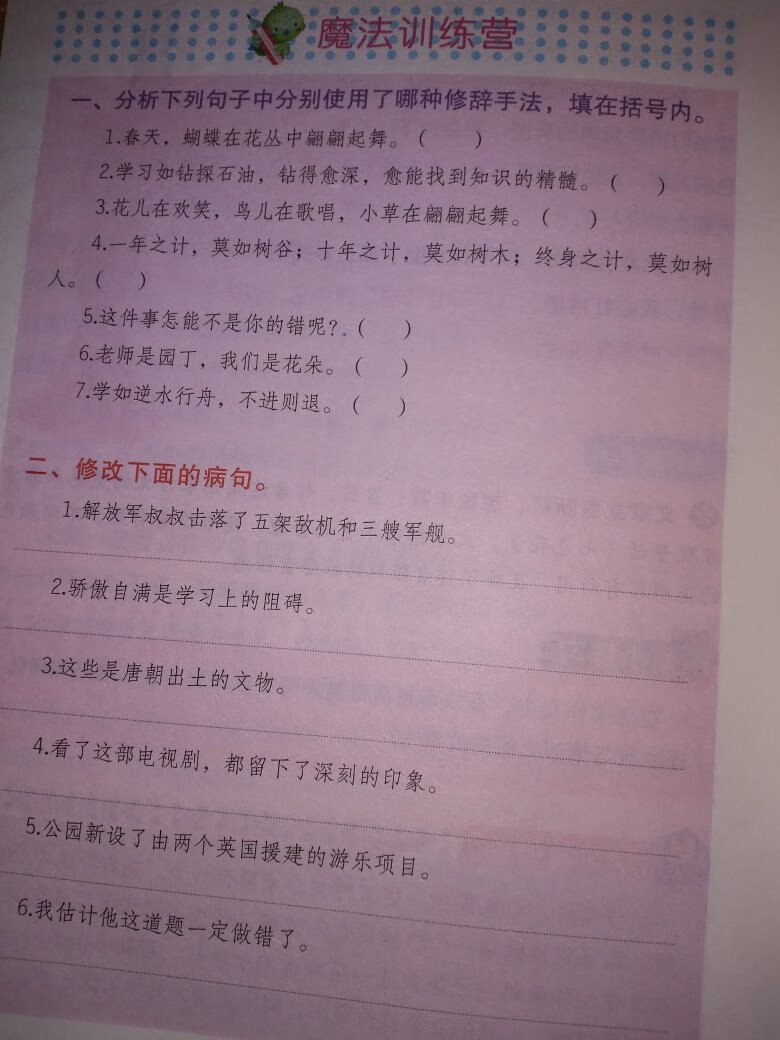 魔法训练营
一、分析下列句子中分别使用了哪种修辞手法，填在括号内。
1.春天，蝴蝶在花丛中翩翩起舞。（　　）
2.学习如钻探石油，钻得愈深，愈能找到知识的精髓。（　　）
3.花儿在欢笑，鸟儿在歌唱，小草在翩翩起舞。（　　）
4.一年之计，莫如树谷；十年之计，莫如树木；终身之计，莫如树
人。（　　）
5.这件事怎能不是你的错呢？（　　）
6.老师是园丁，我们是花朵。（　　）
7.学如逆水行舟，不进则退。（　　）
二、修改下面的病句。
1.解放军叔叔击落了五架敌机和三艘军舰。
2.骄傲自满是学习上的阻碍。
3.这些是唐朝出土的文物。
4.看了这部电视剧，都留下了深刻的印象。
5.公园新设了由两个英国援建的游乐项目。
6.我估计他这道题一定做错了。